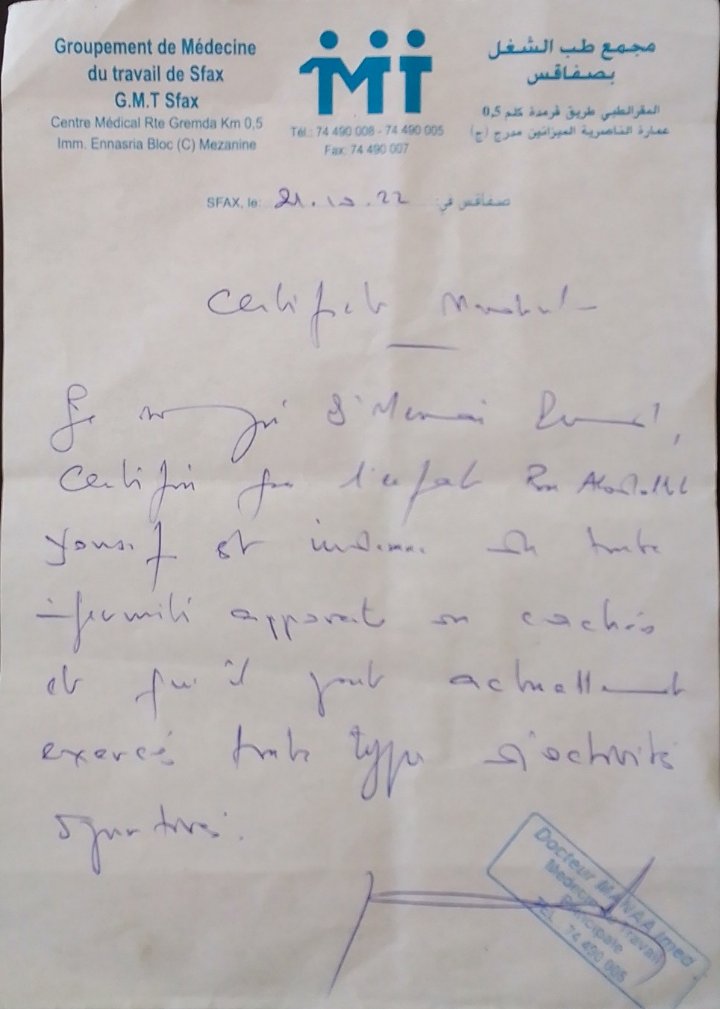 Groupement de Médecine
du travail de Sfax
G.M.T Sfax
Centre Médical Rte Gremda Km 0,5
Imm. Ennasria Bloc (C) Mezanine
MT
Tél.: 74 490 008 - 74 490 005
Fax: 74 490 007
مجمع طب الشغل
بصفاقس
المقر الطبي طريق قرمدة كلم 0,5
عمارة الناصرية الميزانين مدرج (ج)
SFAX, le: 21.10.22 صفاقس في:
Certificat
Je
Certifie que l'enfant Ben
Yousef est indemne de toute
infirmité apparente ou cachés
et qu'il peut actuellement
exercé toute type d'activité
sportives.
Docteur Imed
Médecin du Travail
Principale
TEL: 74 490 005